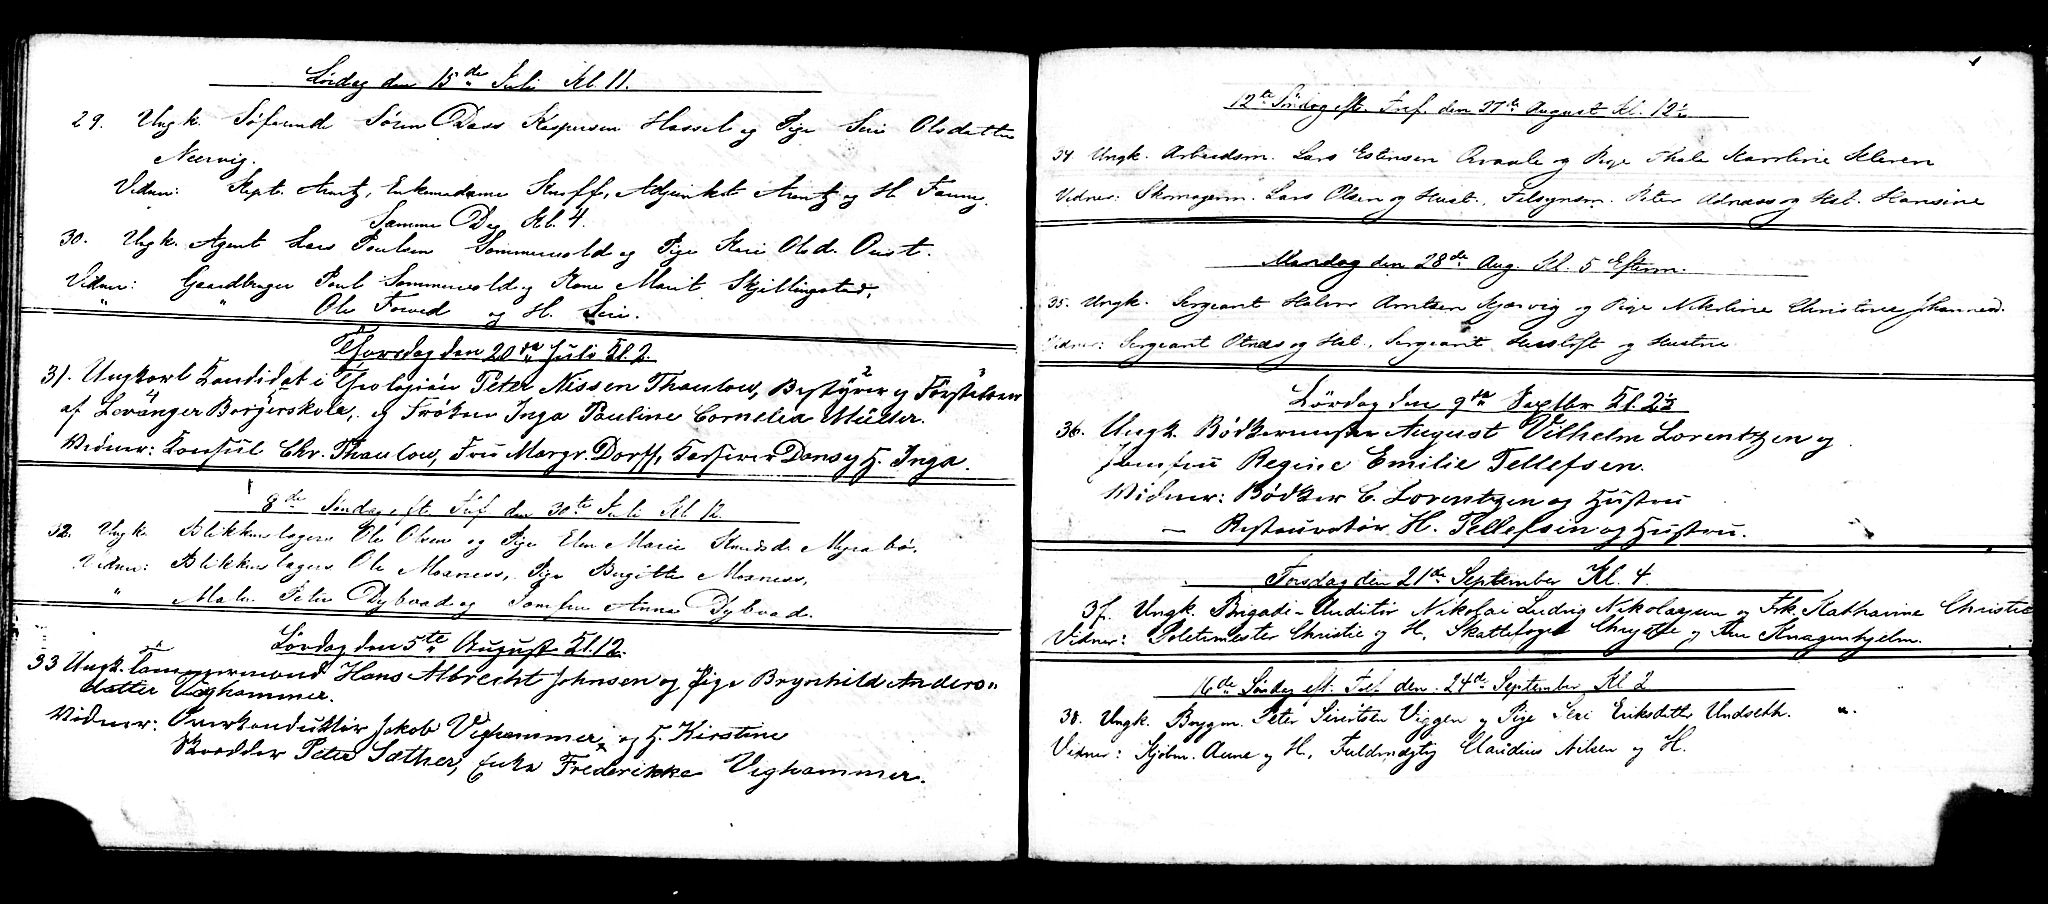 Lördag den 15de Juli Kl. 11.
29. Ungk. Söfarende Sören Dass Kaspersen Hassel og Pige Seri Olsdatter
Nærvig.
Vidner: Kapt. Arntz, Enkemadame Knoff, Adjunkt Arntz og H. Fanny.
Samme Dag Kl. 4.
30. Ungk. Agent Lars Paulsen Sommervold og Pige Kari Olsd. Qvist.
Vidner: Gaardbruger Paul Sommervold og Kone Marit Skjellingstad,
" " Ole Forved og H. Seri.
Thorsdag den 20de Juli Kl. 2.
31. Ungkarl Kandidat i Theologien Peter Nissen Thaulow, Bestyrer og Forstander
af Levanger Borgerskole, og Fröken Inga Pauline Cornelia Müller.
Vidner: Konsul Chr. Thaulow, Fru Margr. Dorff, Kasserer Dons og H. Inga.
8de Söndag eft. Tref. den 30te Juli Kl. 12.
32. Ungk. Blikkenslager Ole Olsen og Pige Elen Marie Knudsd. Myrabö.
Vidner: Blikkenslager Ole Moaness, Pige Birgitte Moaness,
" Maler Peter Dybvad og Jomfru Anna Dybvad.
Lördag den 5te August Kl. 12.
33 Ungk. Tömmermand Hans Albrecht Johnsen og Pige Brynhild Anders-
datter Vighammer.
Vidner: Overkonduktör Jakob Vighammer, og H. Kirstine
Skrædder Peter Sæther, Enke Frederikke Vighammer.
12te Söndag eft. Tref. den 27de August Kl. 12½
34 Ungk. Arbeidsm. Lars Estensen Qvaale og Pige Thale Karoline Kleven
Vidner: Skomagerm. Lars Olsen og Hust., Tilsynsm. Peter Udnæss og Hst. Hansine
Mandag den 28de Aug. Kl. 5 Efterm.
35. Ungk. Sergeant Halvor Arntsen Kjærvig og Pige Nikoline Christine Johannesd.
Vidner: Sergeant Otnæs og Hst., Sergeant og Hustru
Lördag den 9de Septbr Kl. 2½
36. Ungk. Bödkermester August Vilhelm Lorentzen og
Jomfru Regine Emilie Tellefsen.
Vidner: Bödker C. Lorentzen og Hustru
— Restauratör H. Tellefsen og Hustru.
Torsdag den 21de September Kl. 4
37. Ungk. Brigade-Auditör Nikolai Ludvig Nikolaysen og Frk. Katharine Christie
Vidner: Politimester Christie og H, Skattefoged Chrystie og Fru Knagenhjelm.
16de Söndag eft. Tref. den 24de September Kl 2
38. Ungk. Byggm. Peter Sivertsen Viggen og Pige Seri Eriksdatter Undseth.
Vidner: Kjöbm. Aune og H., Fuldmægtig Claudius Nilsen og H.